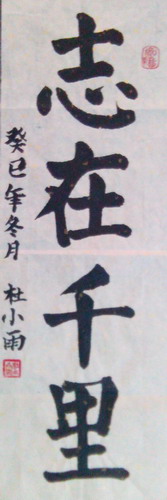 志在千里
癸巳年冬月 杜小雨